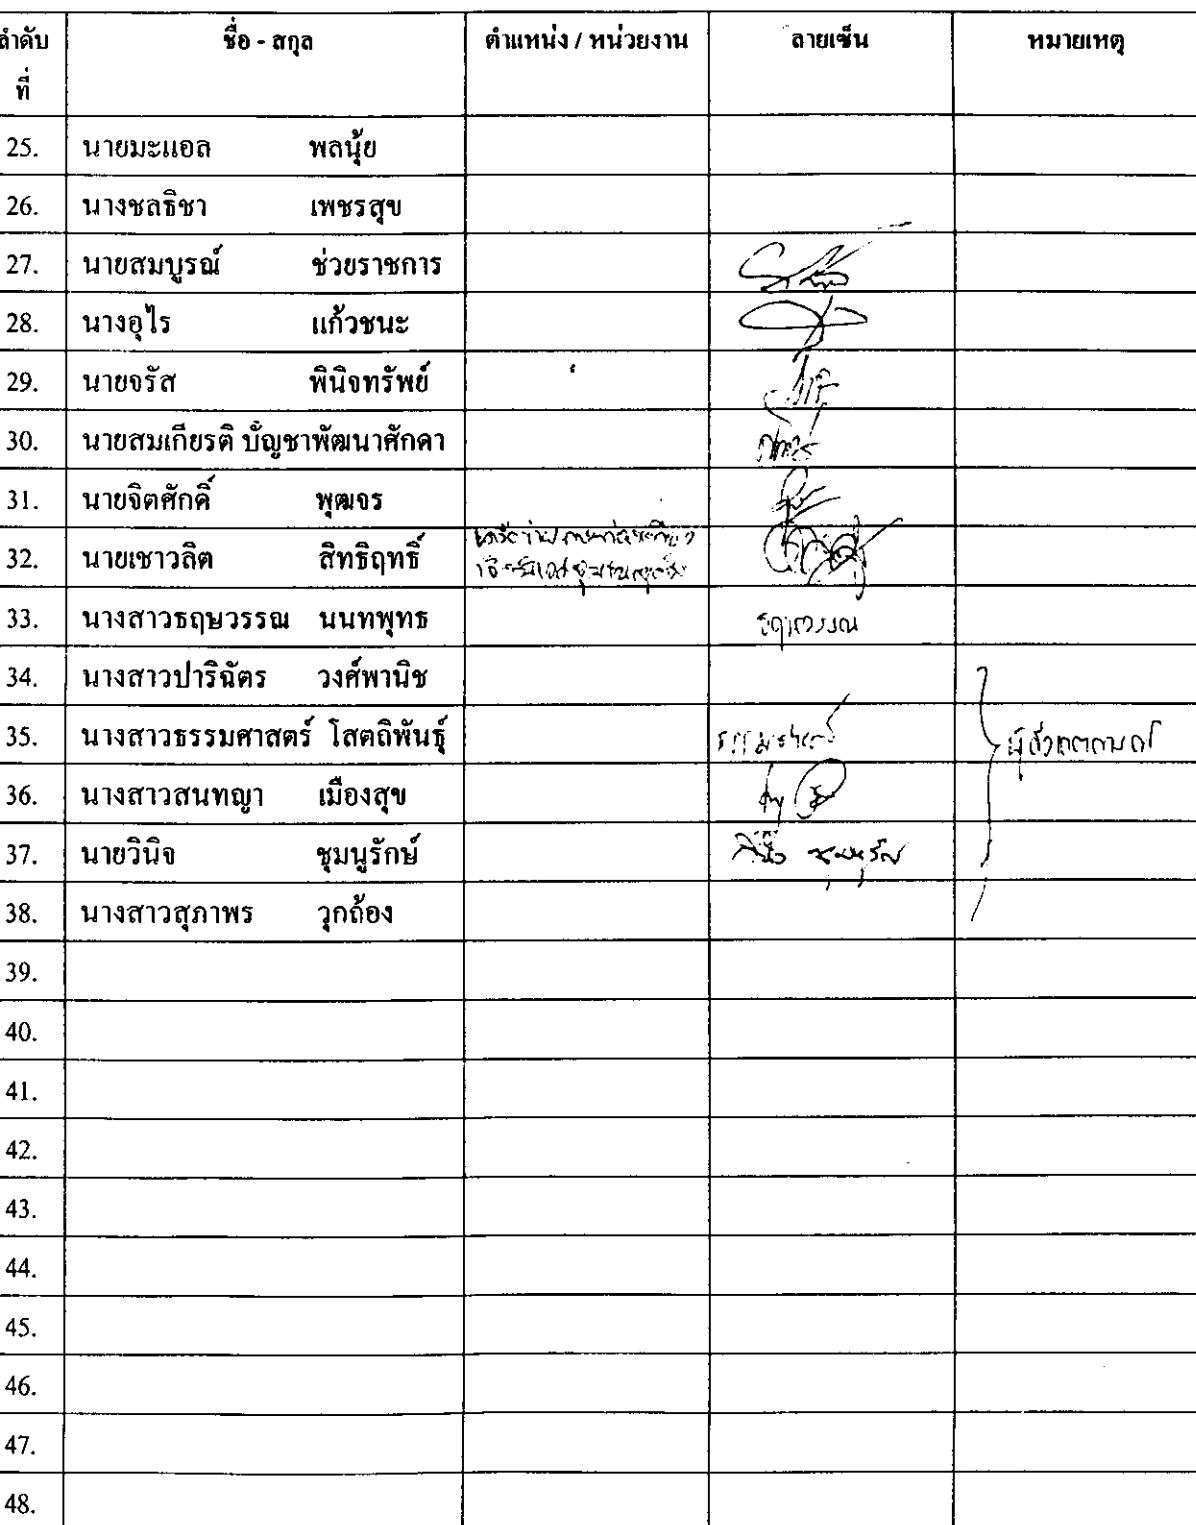 ลำดับ ชื่อ - สกุล ตำแหน่ง / หน่วยงาน ลายเซ็น หมายเหตุ
ที่
25. นายมะแอล พลนุ้ย
26. นางชลธิชา เพชรสุข
27. นายสมบูรณ์ ช่วยราชการ
28. นางอุไร แก้วชนะ
29. นายจรัส พินิจทรัพย์
30. นายสมเกียรติ บัญชาพัฒนาศักดา
31. นายจิตศักดิ์ พุฒจร
32. นายเชาวลิต สิทธิฤทธิ์
33. นางสาวธฤษวรรณ นนทพุทธ
34. นางสาวปาริฉัตร วงศ์พานิช
35. นางสาวธรรมศาสตร์ โสตถิพันธุ์ ธรรมศาสตร์ ผู้สังเกตการณ์
36. นางสาวสนทญา เมืองสุข
37. นายวินิจ ชุมนูรักษ์ วินิจ ชุมนูรักษ์
38. นางสาวสุภาพร วุกถ้อง
39.
40.
41.
42.
43.
44.
45.
46.
47.
48.